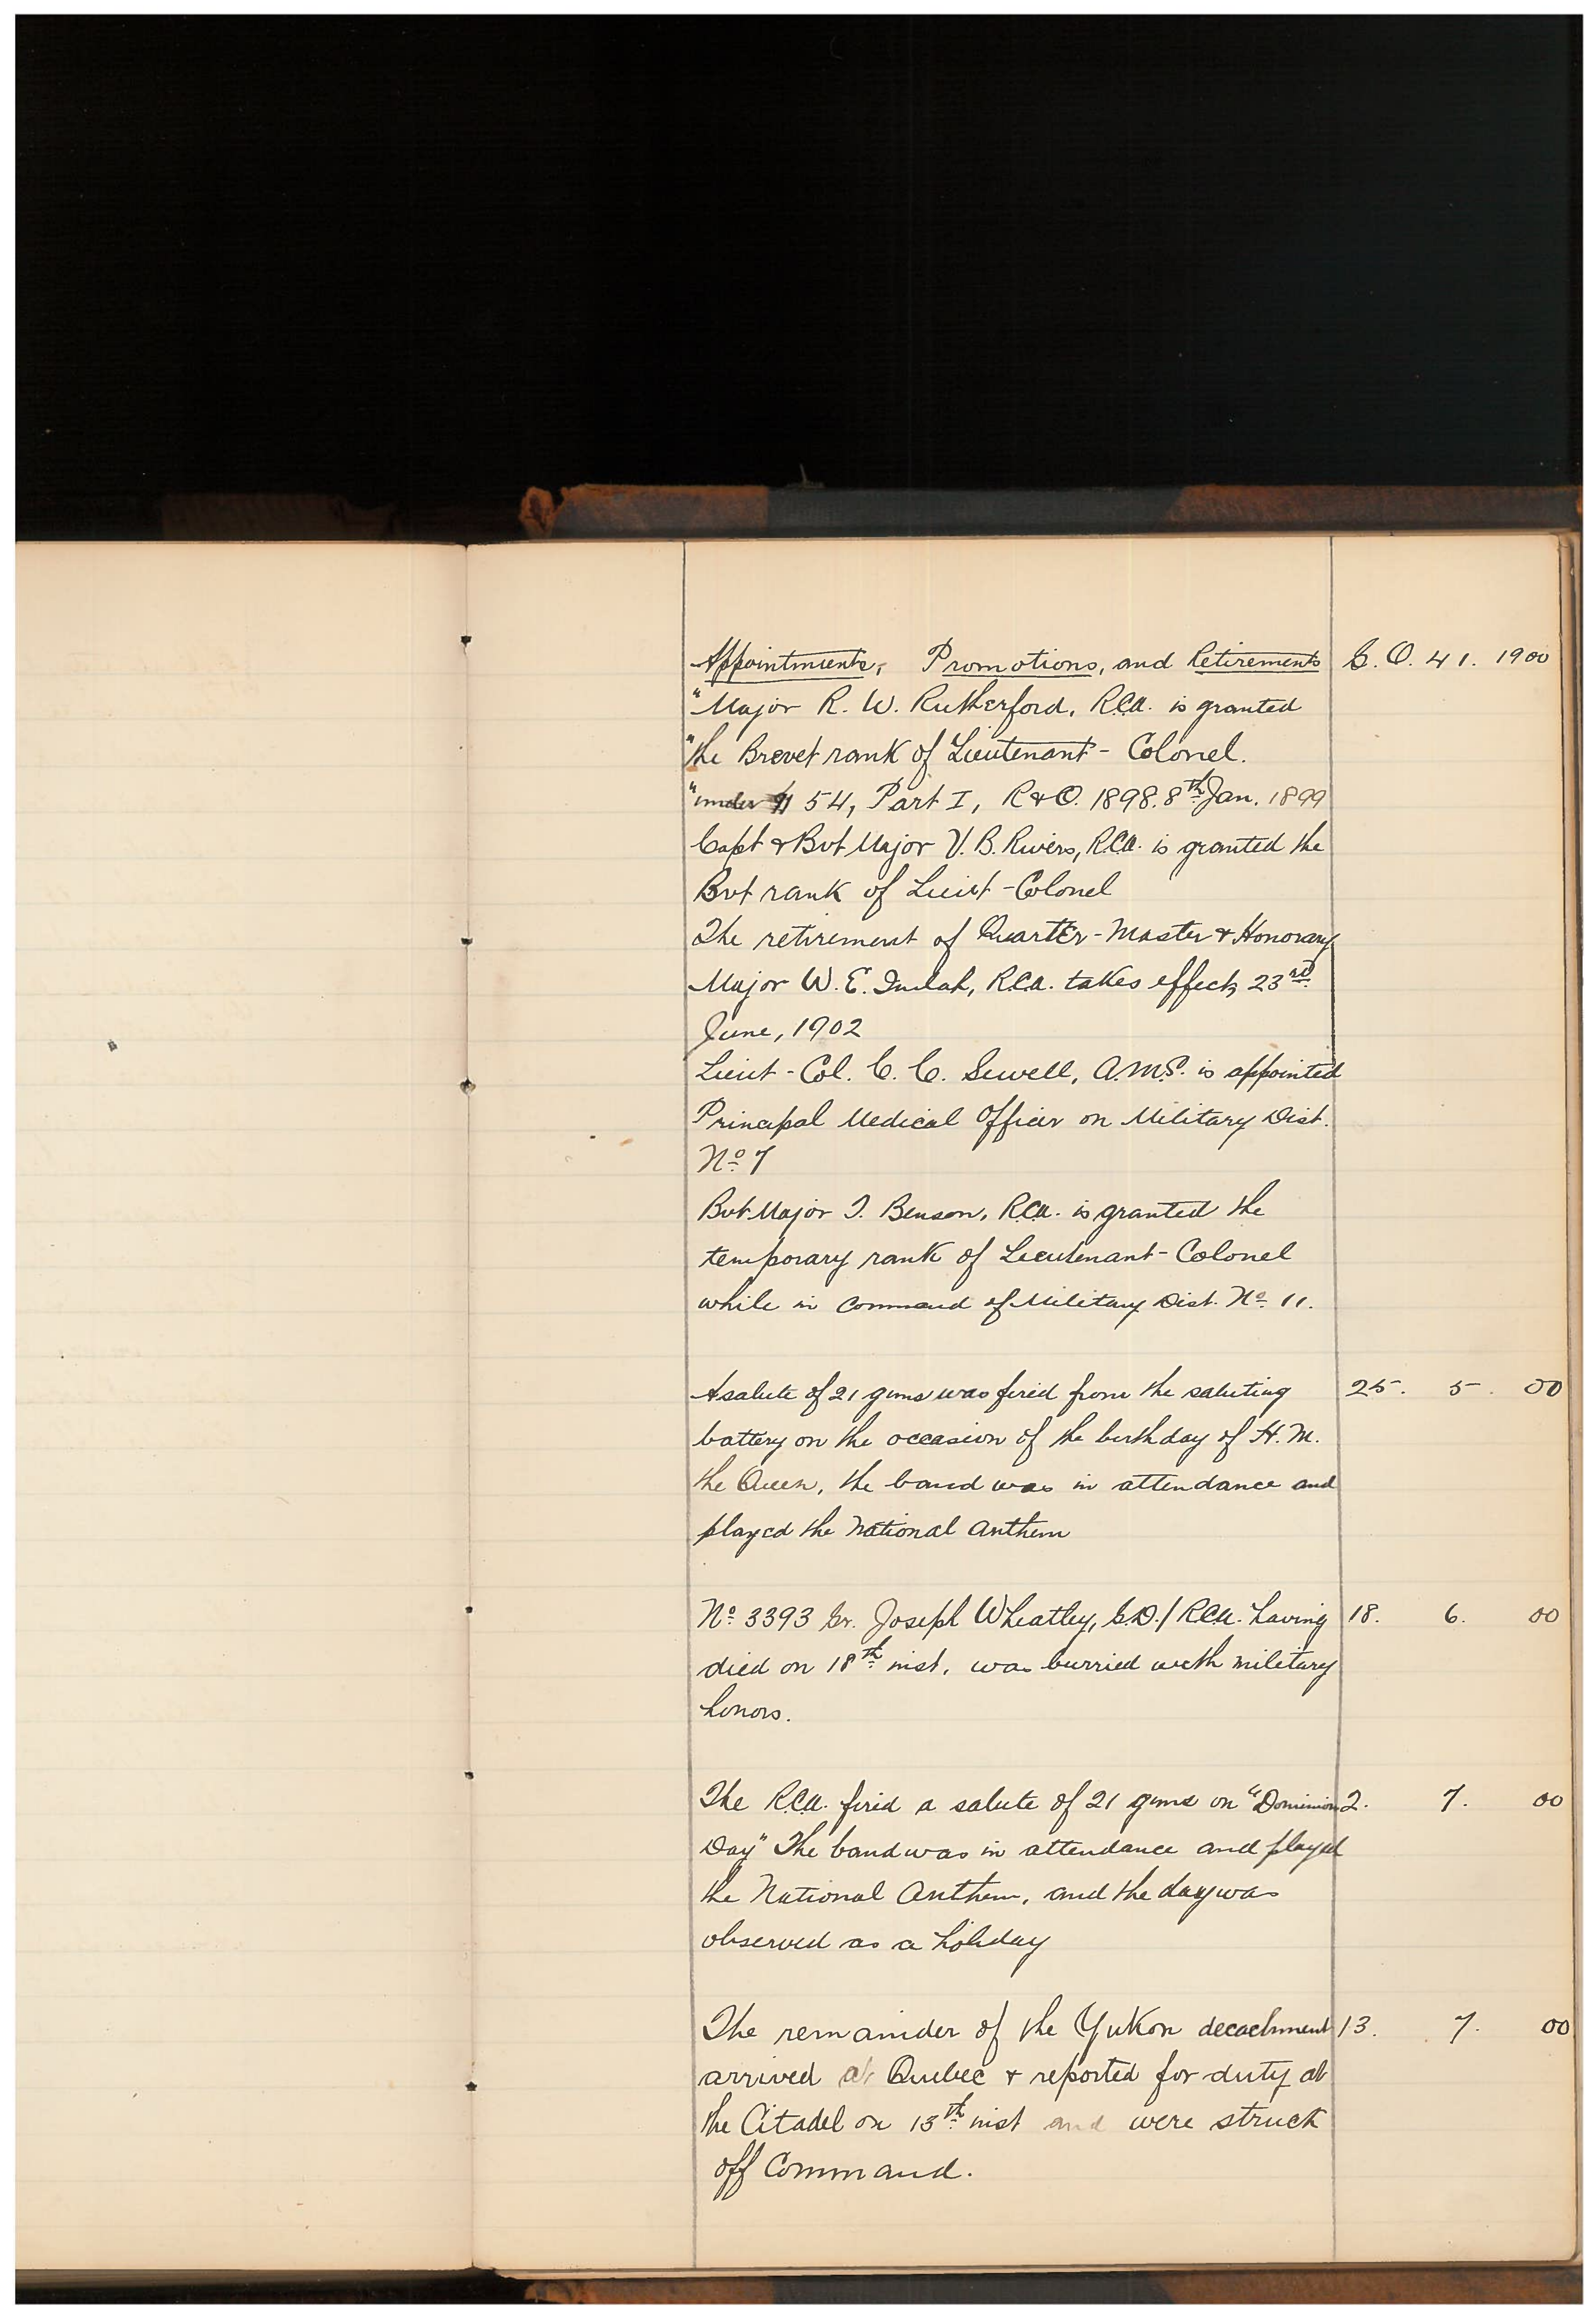 Appointments, Promotions, and Retirements G. O. 41. 1900
"Major R. W. Rutherford, R.C.A. is granted
"the Brevet rank of Lieutenant-Colonel.
"under ¶ 54, Part I, R & O. 1898. 8th Jan. 1899
Capt & Bvt Major V. B. Rivers, R.C.A. is granted the
Bvt rank of Lieut-Colonel
The retirement of Quarter-Master & Honorary
Major W. E. Imlah, R.C.A. takes effect, 23rd
June, 1902
Lieut-Col. C. C. Sewell, A.M.S. is appointed
Principal Medical Officer on Military Dist.
No 7
Bvt Major T. Benson, R.C.A. is granted the
temporary rank of Lieutenant-Colonel
while in command of Military Dist. No 11.
A salute of 21 guns was fired from the saluting 25. 5. 00
battery on the occasion of the birthday of H. M.
the Queen, the band was in attendance and
played the National Anthem
No 3393 Gr. Joseph Wheatley, G.D./R.C.A. having 18. 6. 00
died on 18th inst, was burried with military
honors.
The R.C.A. fired a salute of 21 guns on "Dominion 2. 7. 00
Day" The band was in attendance and played
the National Anthem, and the day was
observed as a holiday
The remainder of the Yukon decachment 13. 7. 00
arrived at Quebec & reported for duty at
the Citadel on 13th inst and were struck
off Command.